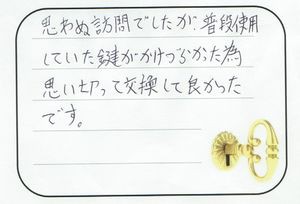 思わぬ訪問でしたが、普段使用
していた鍵がかけづらかった為
思い切って交換して良かった
です。